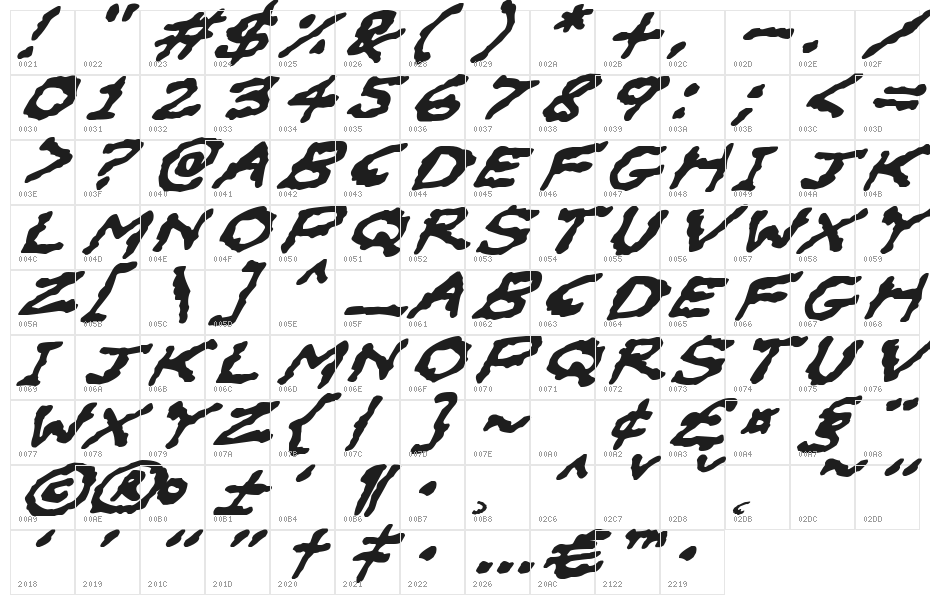 ! " # $ % & ( ) * + , - . /
0021 0022 0023 0024 0025 0026 0028 0029 002A 002B 002C 002D 002E 002F
0 1 2 3 4 5 6 7 8 9 : ; < =
0030 0031 0032 0033 0034 0035 0036 0037 0038 0039 003A 003B 003C 003D
> ? @ A B C D E F G H I J K
003E 003F 0040 0041 0042 0043 0044 0045 0046 0047 0048 0049 004A 004B
L M N O P Q R S T U V W X Y
004C 004D 004E 004F 0050 0051 0052 0053 0054 0055 0056 0057 0058 0059
Z [ \ ] ^ _ A B C D E F G H
005A 005B 005C 005D 005E 005F 0061 0062 0063 0064 0065 0066 0067 0068
I J K L M N O P Q R S T U V
0069 006A 006B 006C 006D 006E 006F 0070 0071 0072 0073 0074 0075 0076
W X Y Z { | } ~ ¢ £ ¤ § ¨
0077 0078 0079 007A 007B 007C 007D 007E 00A0 00A2 00A3 00A4 00A7 00A8
© ® ° ± ´ ¶ · ¸ ˆ ˇ ˘ ˛ ˜ ˝
00A9 00AE 00B0 00B1 00B4 00B6 00B7 00B8 02C6 02C7 02D8 02DB 02DC 02DD
‘ ’ “ ” † ‡ • … € ™ ∙
2018 2019 201C 201D 2020 2021 2022 2026 20AC 2122 2219